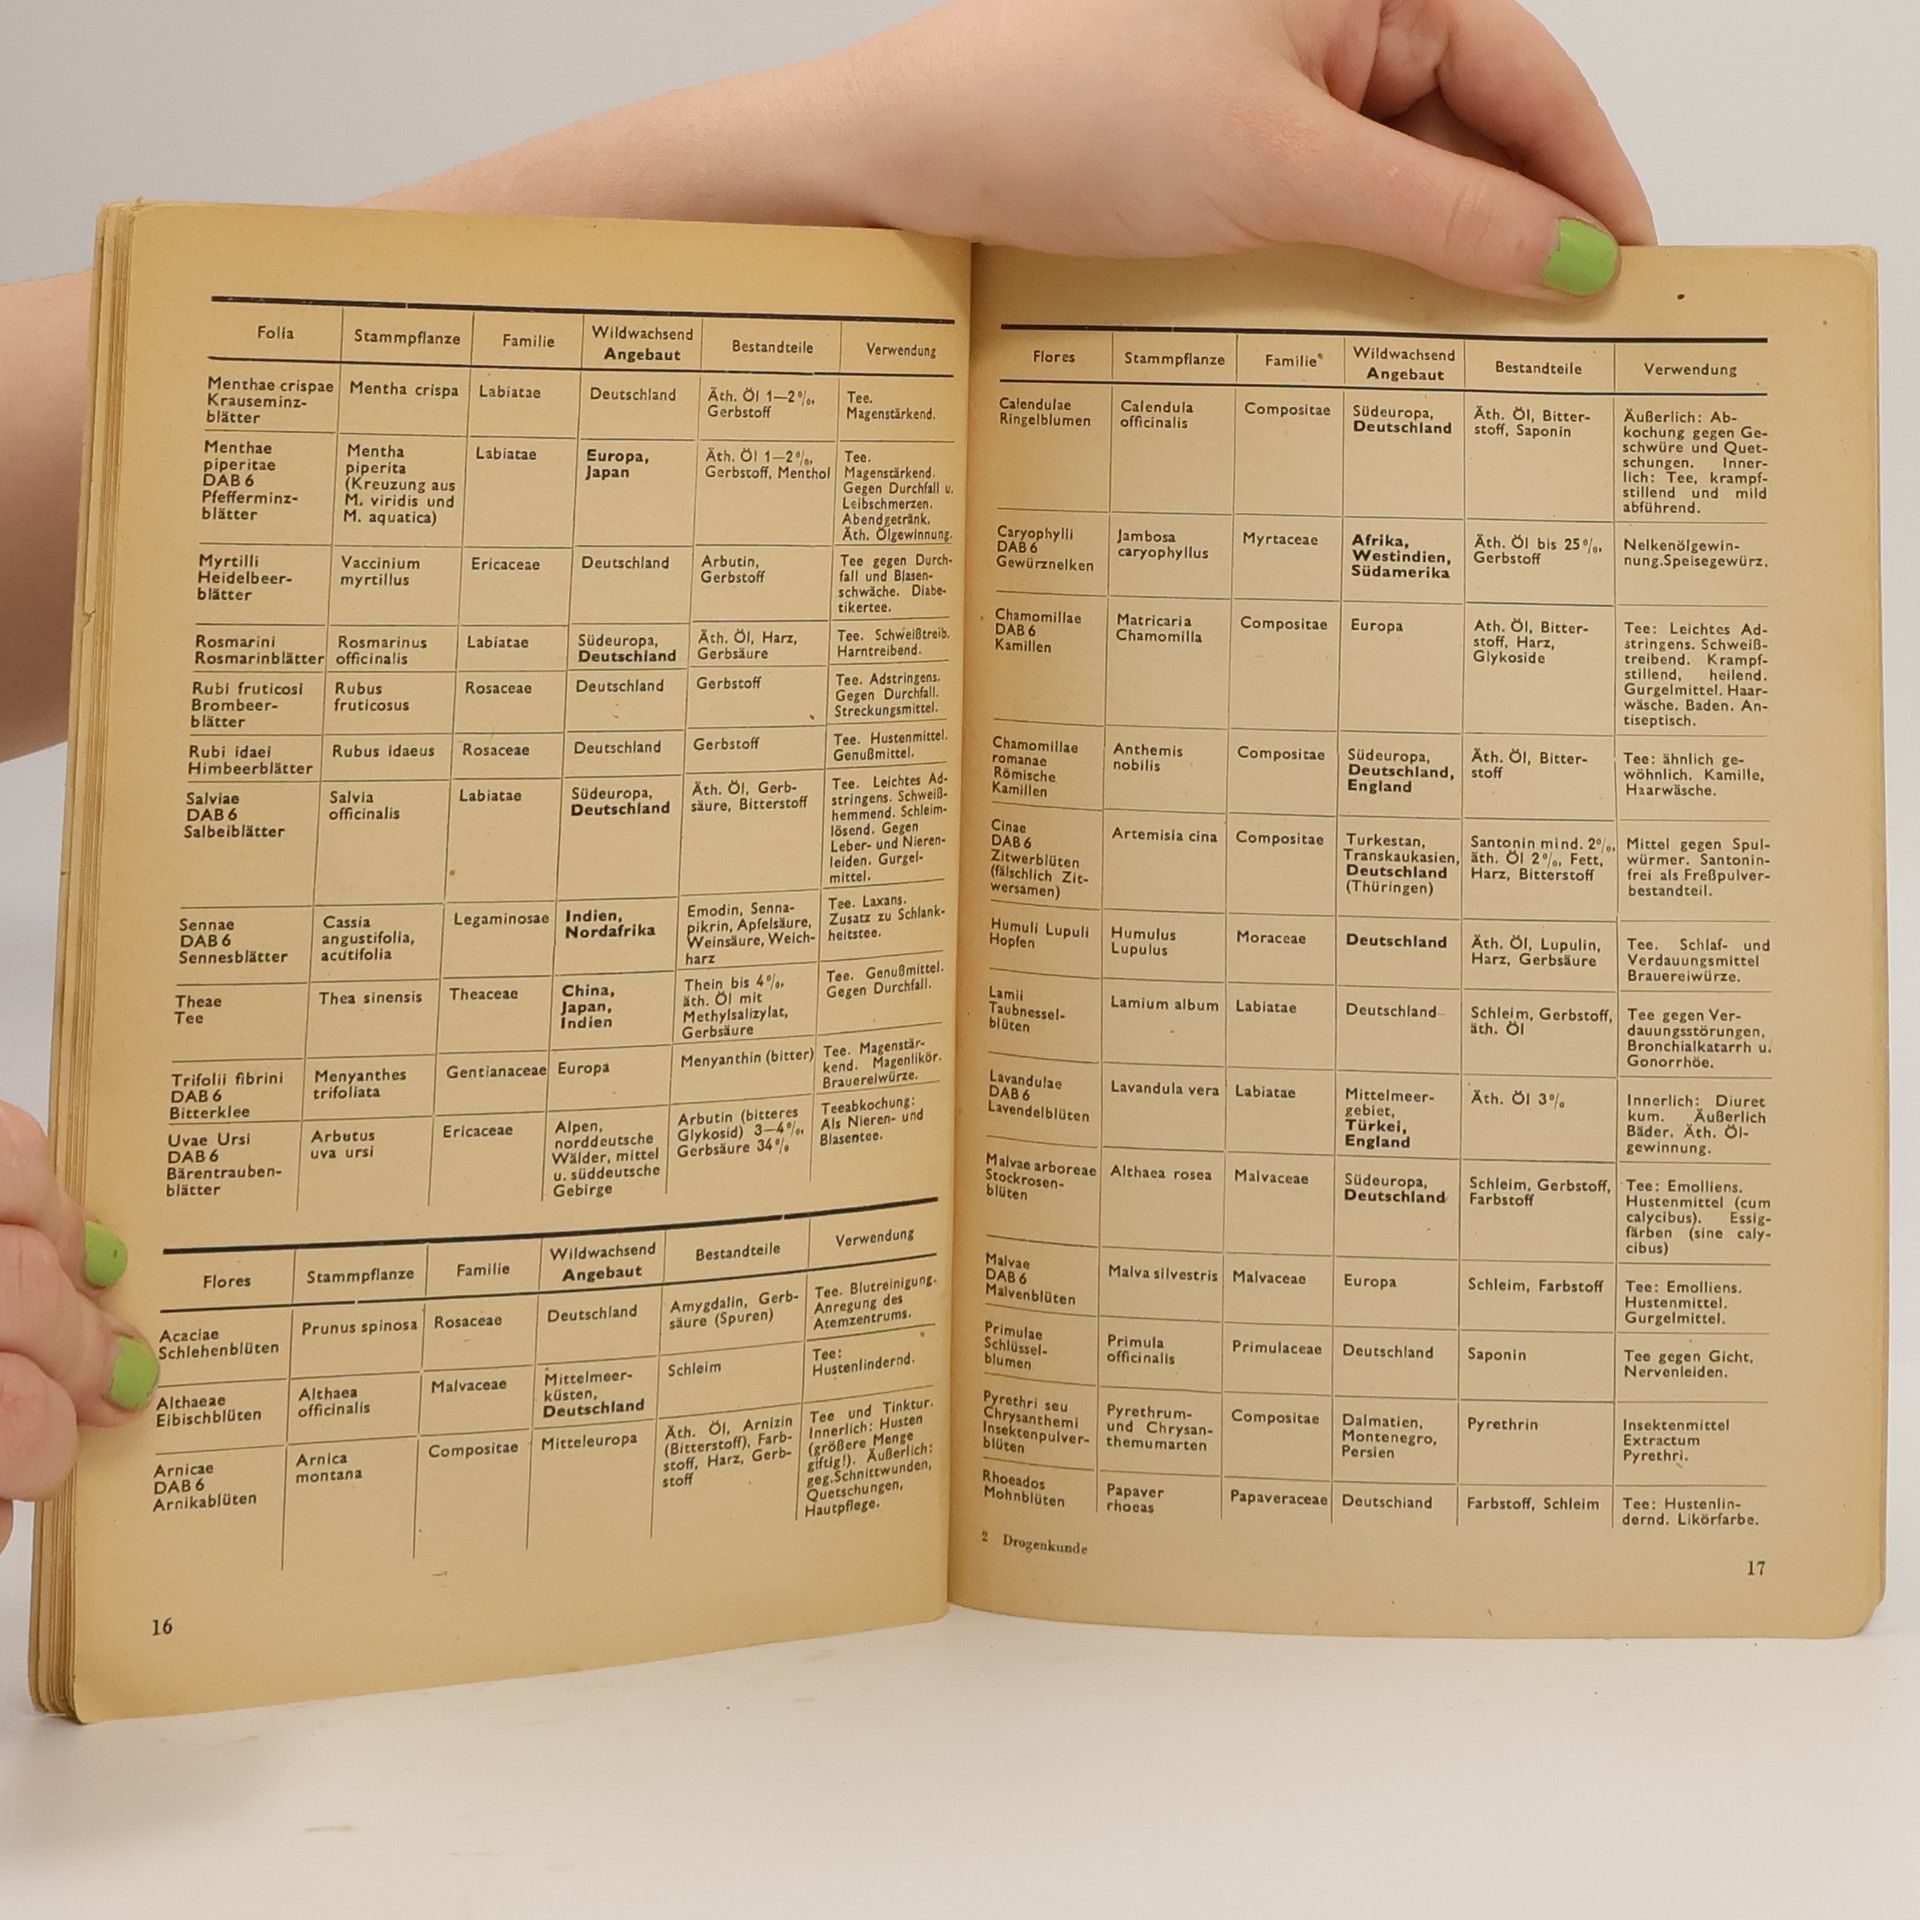 Folia | Stammpflanze | Familie | Wildwachsend Angebaut | Bestandteile | Verwendung
Menthae crispae Krauseminz-blätter | Mentha crispa | Labiatae | Deutschland | Äth. Öl 1—2%, Gerbstoff | Tee. Magenstärkend.
Menthae piperitae DAB 6 Pfefferminz-blätter | Mentha piperita (Kreuzung aus M. viridis und M. aquatica) | Labiatae | Europa, Japan | Äth. Öl 1—2%, Gerbstoff, Menthol | Tee. Magenstärkend. Gegen Durchfall u. Leibschmerzen. Abendgetränk. Äth. Ölgewinnung.
Myrtilli Heidelbeer-blätter | Vaccinium myrtillus | Ericaceae | Deutschland | Arbutin, Gerbstoff | Tee gegen Durch-fall und Blasen-schwäche. Diabe-tikertee.
Rosmarini Rosmarinblätter | Rosmarinus officinalis | Labiatae | Südeuropa, Deutschland | Äth. Öl, Harz, Gerbsäure | Tee. Schweißtreib. Harntreibend.
Rubi fruticosi Brombeer-blätter | Rubus fruticosus | Rosaceae | Deutschland | Gerbstoff | Tee. Adstringens. Gegen Durchfall. Streckungsmittel.
Rubi idaei Himbeerblätter | Rubus idaeus | Rosaceae | Deutschland | Gerbstoff | Tee. Hustenmittel. Genußmittel.
Salviae DAB 6 Salbeiblätter | Salvia officinalis | Labiatae | Südeuropa, Deutschland | Äth. Öl, Gerb-säure, Bitterstoff | Tee. Leichtes Ad-stringens. Schweiß-hemmend. Schleim-lösend. Gegen Leber- und Nieren-leiden. Gurgel-mittel.
Sennae DAB 6 Sennesblätter | Cassia angustifolia, acutifolia | Legaminosae | Indien, Nordafrika | Emodin, Senna-pikrin, Apfelsäure, Weinsäure, Weich-harz | Tee. Laxans. Zusatz zu Schlank-heitstee.
Theae Tee | Thea sinensis | Theaceae | China, Japan, Indien | Thein bis 4%, äth. Öl mit Methylsalizylat, Gerbsäure | Tee. Genußmittel. Gegen Durchfall.
Trifolii fibrini DAB 6 Bitterklee | Menyanthes trifoliata | Gentianaceae | Europa | Menyanthin (bitter) | Tee. Magenstär-kend. Magenlikör. Brauereiwürze.
Uvae Ursi DAB 6 Bärentrauben-blätter | Arbutus uva ursi | Ericaceae | Alpen, norddeutsche Wälder, mittel u. süddeutsche Gebirge | Arbutin (bitteres Glykosid) 3—4%, Gerbsäure 34% | Teeabkochung: Als Nieren- und Blasentee.
Flores | Stammpflanze | Familie | Wildwachsend Angebaut | Bestandteile | Verwendung
Acaciae Schlehenblüten | Prunus spinosa | Rosaceae | Deutschland | Amygdalin, Gerb-säure (Spuren) | Tee. Blutreinigung. Anregung des Atemzentrums.
Althaeae Eibischblüten | Althaea officinalis | Malvaceae | Mittelmeer-küsten, Deutschland | Schleim | Tee: Hustenlindernd.
Arnicae DAB 6 Arnikablüten | Arnica montana | Compositae | Mitteleuropa | Äth. Öl, Arnizin (Bitterstoff), Farb-stoff, Harz, Gerb-stoff | Tee und Tinktur. Innerlich: Husten (größere Menge giftig!). Äußerlich: geg. Schnittwunden, Quetschungen, Hautpflege.
16
Flores | Stammpflanze | Familie | Wildwachsend Angebaut | Bestandteile | Verwendung
Calendulae Ringelblumen | Calendula officinalis | Compositae | Südeuropa, Deutschland | Äth. Öl, Bitter-stoff, Saponin | Äußerlich: Ab-kochung gegen Ge-schwüre und Quet-schungen. Inner-lich: Tee, krampf-stillend und mild abführend.
Caryophylli DAB 6 Gewürznelken | Jambosa caryophyllus | Myrtaceae | Afrika, Westindien, Südamerika | Äth. Öl bis 25%, Gerbstoff | Nelkenölgewin-nung. Speisegewürz.
Chamomillae DAB 6 Kamillen | Matricaria Chamomilla | Compositae | Europa | Äth. Öl, Bitter-stoff, Harz, Glykoside | Tee: Leichtes Ad-stringens. Schweiß-treibend. Krampf-stillend, heilend. Gurgelmittel. Haar-wäsche. Baden. An-tiseptisch.
Chamomillae romanae Römische Kamillen | Anthemis nobilis | Compositae | Südeuropa, Deutschland, England | Äth. Öl, Bitter-stoff | Tee: ähnlich ge-wöhnlich. Kamille, Haarwäsche.
Cinae DAB 6 Zitwerblüten (fälschlich Zit-wersamen) | Artemisia cina | Compositae | Turkestan, Transkaukasien, Deutschland (Thüringen) | Santonin mind. 2%, äth. Öl 2%, Fett, Harz, Bitterstoff | Mittel gegen Spul-würmer. Santonin-frei als Freßpulver-bestandteil.
Humuli Lupuli Hopfen | Humulus Lupulus | Moraceae | Deutschland | Äth. Öl, Lupulin, Harz, Gerbsäure | Tee. Schlaf- und Verdauungsmittel Brauereiwürze.
Lamii Taubnessel-blüten | Lamium album | Labiatae | Deutschland | Schleim, Gerbstoff, äth. Öl | Tee gegen Ver-dauungsstörungen, Bronchialkatarrh u. Gonorrhöe.
Lavandulae DAB 6 Lavendelblüten | Lavandula vera | Labiatae | Mittelmeer-gebiet, Türkei, England | Äth. Öl 3% | Innerlich: Diuret kum. Äußerlich Bäder. Äth. Öl-gewinnung.
Malvae arboreae Stockrosen-blüten | Althaea rosea | Malvaceae | Südeuropa, Deutschland | Schleim, Gerbstoff, Farbstoff | Tee: Emolliens. Hustenmittel (cum calycibus). Essig-färben (sine caly-cibus)
Malvae DAB 6 Malvenblüten | Malva silvestris | Malvaceae | Europa | Schleim, Farbstoff | Tee: Emolliens. Hustenmittel. Gurgelmittel.
Primulae Schlüssel-blumen | Primula officinalis | Primulaceae | Deutschland | Saponin | Tee gegen Gicht, Nervenleiden.
Pyrethri seu Chrysanthemi Insektenpulver-blüten | Pyrethrum- und Chrysan-themumarten | Compositae | Dalmatien, Montenegro, Persien | Pyrethrin | Insektenmittel Extractum Pyrethri.
Rhoeados Mohnblüten | Papaver rhoeas | Papaveraceae | Deutschland | Farbstoff, Schleim | Tee: Hustenlin-dernd. Likörfarbe.
2 Drogenkunde
17